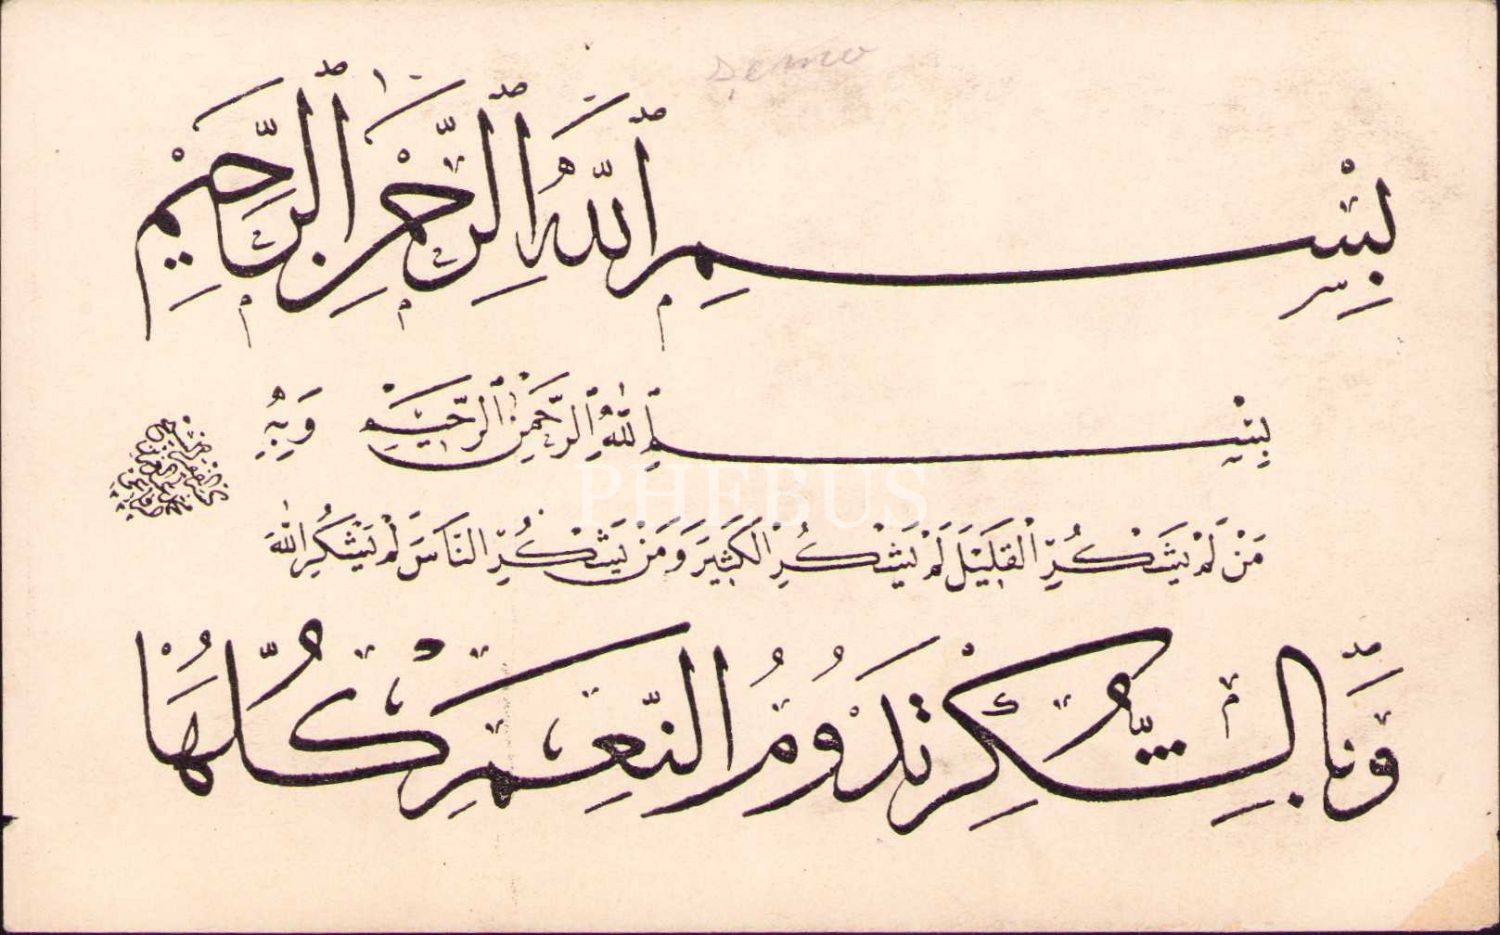 Demo
بِسْمِ ٱللَّهِ ٱلرَّحْمٰنِ ٱلرَّحِيمِ
بِسْمِ ٱللّٰهِ ٱلرَّحْمٰنِ ٱلرَّحِيمِ وَبِهِ
PHEBUS
مَنْ لَمْ يَشْكُرِ الْقَلِيْلَ لَمْ يَشْكُرِ الْكَثِيرَ وَمَنْ لَمْ يَشْكُرِ النَّاسَ لَمْ يَشْكُرِ اللّٰهَ
وَبِالشُّكْرِ تَدُومُ النِّعَمُ كُلُّهَا